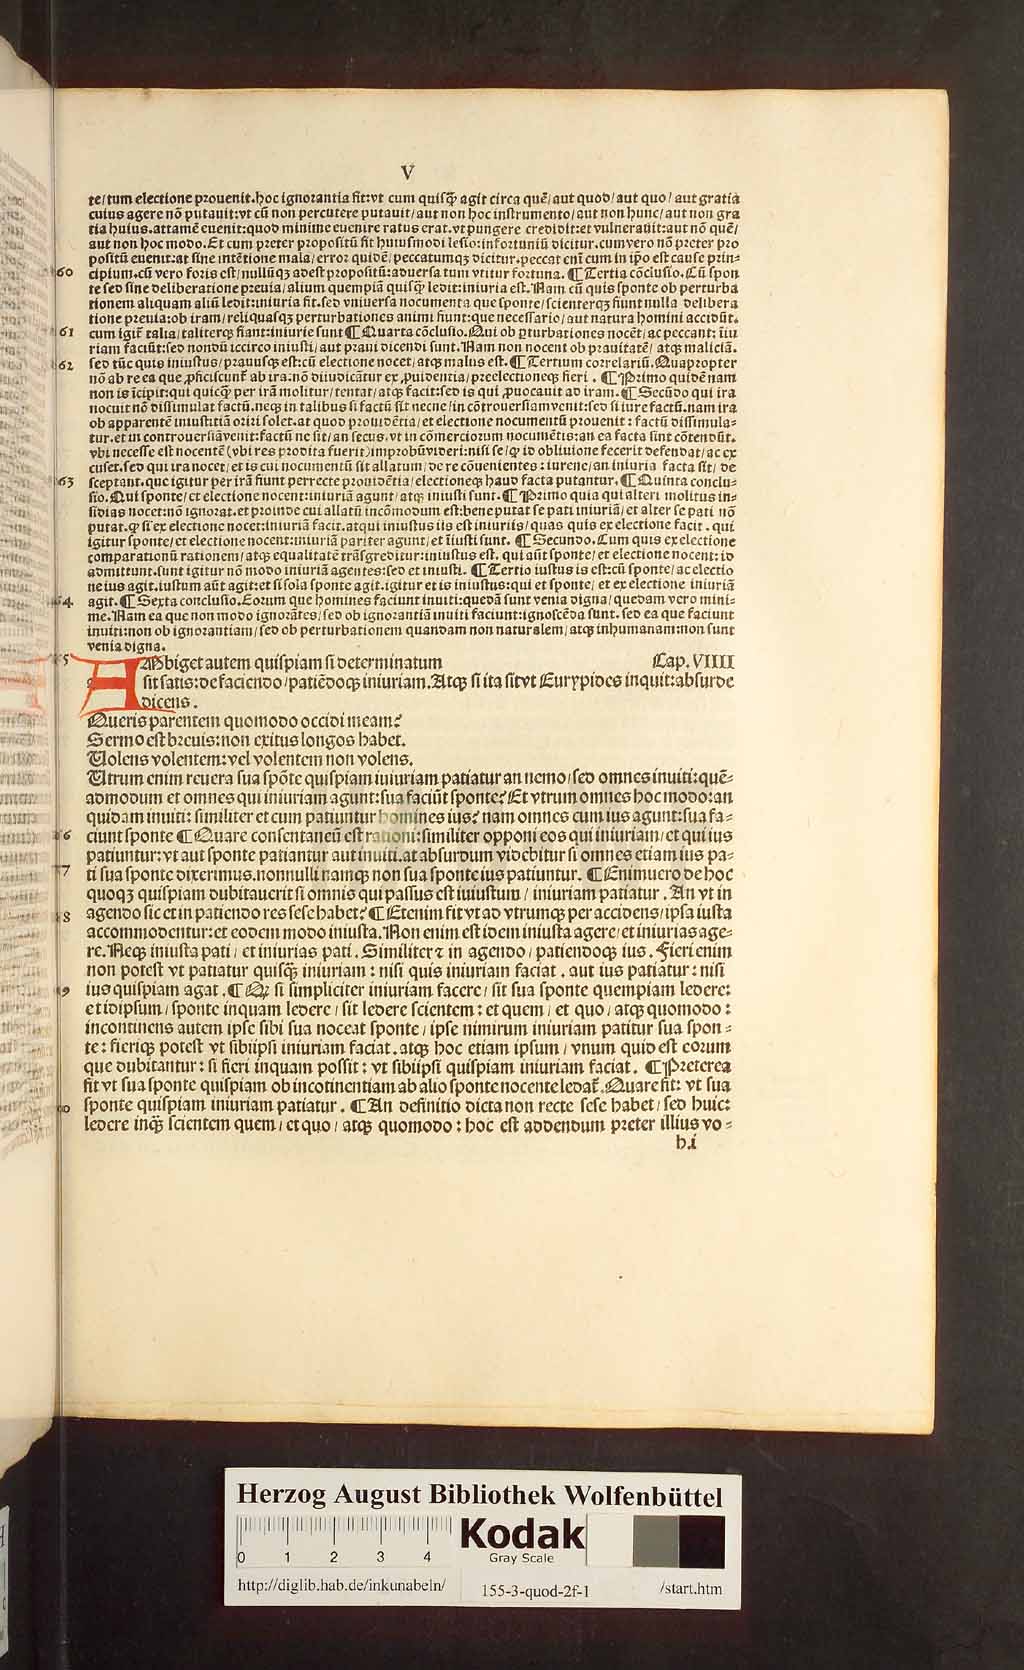 V
te/tum electione prouenit.hoc ignorantia fit:vt cum quisq̃ʒ agit circa quẽ/aut quod/aut quo/aut gratia
cuius agere nõ putauit:vt cũ non percutere putauit/aut non hoc instrumento/aut non hunc/aut non gra
tia huius.attamẽ euenit:quod minime euenire ratus erat.vt pungere credidit:et vulnerauit:aut nõ quẽ/
aut non hoc modo.Et cum preter propositũ fit huiusmodi lesio:infortuniũ dicitur.cum vero nõ preter pro
positũ euenit:at sine intẽtione mala/error quidẽ/peccatumqʒ dicitur.peccat em̃ cum in ip̃o est cause prin-
60 cipium.cũ vero foris est/nullũqʒ adest propositũ:aduersa tum vtitur fortuna. ¶Tertia cõclusio.Cũ spon
te sed sine deliberatione preuia/alium quempiã quisqʒ ledit:iniuria est.Nam cũ quis sponte ob perturba
tionem aliquam aliũ ledit:iniuria fit.sed vniuersa nocumenta que sponte/scienterqʒ fiunt nulla delibera
tione preuia:ob iram/reliquasqʒ perturbationes animi fiunt:que necessario/aut natura homini accidũt.
61 cum igit̃ talia/taliterqʒ fiant:iniurie sunt ¶Quarta cõclusio.Qui ob ꝑturbationes nocẽt/ac peccant: ĩiu
riam faciũt:sed nondũ iccirco iniusti/aut praui dicendi sunt.Nam non nocent ob prauitatẽ/atqʒ maliciã.
62 sed tũc quis iniustus/prauusqʒ est:cũ electione nocet/atqʒ malus est.¶Tertium correlariũ.Quapropter
nõ ab re ea que ꝓficiscunt̃ ab ira:nõ diiudicãtur ex ꝓuidentia/preelectioneqʒ fieri . ¶Primo quidẽ nam
non is ĩcipit:qui quicqʒ per irã molitur/tentat/atqʒ facit:sed is qui ꝓuocauit ad iram.¶Secũdo qui ira
nocuit nõ dissimulat factũ.neqʒ in talibus si factũ sit necne/in cõtrouersiam venit:sed si iure factũ.nam ira
ob apparentẽ iniustitiã oriri solet.at quod prouidẽtia/et electione nocumentũ prouenit : factũ dissimula-
tur.et in controuersiã venit:factũ ne sit/an secus.vt in cõmerciorum nocumẽtis:an ea facta sint cõtendũt.
vbi necesse est nocentẽ (vbi res prodita fuerit)improbũ videri:nisi se/ꝙ id obliuione fecerit defendat/ac ex
cuset.sed qui ira nocet/et is cui nocumentũ sit allatum/de re cõuenientes : iurene/an iniuria facta sit/de
63 sceptant.que igitur per irã fiunt perrecte prouidẽtia/electioneqʒ haud facta putantur. ¶Quinta conclu-
sio.Qui sponte/et electione nocent:iniuriã agunt/atqʒ iniusti sunt.¶Primo quia qui alteri molitus in-
sidias nocet:nõ ignorat.et proinde cui allatũ incõmodum est:bene putat se pati iniuriã/et alter se pati nõ
putat.ꝙ si ex electione nocet:iniuriã facit.atqui iniustus iis est iniuriis/quas quis ex electione facit . qui
igitur sponte/et electione nocent:iniuriã pariter agunt/et ĩiusti sunt. ¶Secundo.Cum quis ex electione
comparationũ rationem/atqʒ equalitatẽ trãsgreditur:iniustus est. qui aũt sponte/et electione nocent: id
admittunt.sunt igitur nõ modo iniuriã agentes:sed et iniusti. ¶Tertio iustus is est:cũ sponte/ac electio
ne ius agit.iustum aũt agit:et si sola sponte agit.igitur et is iniustus:qui et sponte/et ex electione iniuriã
64 agit.¶Sexta conclusio.Eorum que homines faciunt inuiti:quedã sunt venia digna/quedam vero mini-
me.Nam ea que non modo ignorãtes/sed ob ignorantiã inuiti faciunt:ignoscẽda sunt. sed ea que faciunt
inuiti:non ob ignorantiam/sed ob perturbationem quandam non naturalem/atqʒ inhumanam:non sunt
venia digna.
65 AMbiget autem quispiam si determinatum Cap.VIIII
sit satis:de faciendo/patiẽdoqʒ iniuriam.Atqʒ si ita sit vt Eurypides inquit:absurde
dicens .
Queris parentem quomodo occidi meam?
Sermo est breuis:non exitus longos habet.
Volens volentem:vel volentem non volens.
Vtrum enim reuera sua spõte quispiam iniuriam patiatur an nemo/sed omnes inuiti:quẽ-
admodum et omnes qui iniuriam agunt:sua faciũt sponte?Et vtrum omnes hoc modo:an
quidam inuiti: similiter et cum patiuntur homines ius? nam omnes cum ius agunt:sua fa-
66 ciunt sponte ¶Quare consentaneũ est rationi:similiter opponi eos qui iniuriam/et qui ius
patiuntur:vt aut sponte patiantur aut inuiti.at absurdum videbitur si omnes etiam ius pa-
67 ti sua sponte dixerimus.nonnulli namqʒ non sua sponte ius patiuntur. ¶Enimuero de hoc
quoqʒ quispiam dubitauerit si omnis qui passus est iuiustum/ iniuriam patiatur .An vt in
68 agendo sic et in patiendo res sese habet?¶Etenim fit vt ad vtrumqʒ per accidens/ipsa iusta
accommodentur:et eodem modo iniusta.Non enim est idem iniusta agere/et iniurias age-
re.Neqʒ iniusta pati/ et iniurias pati .Similiter⁊ in agendo/patiendoqʒ ius .Fieri enim
non potest vt patiatur quisqʒ iniuriam : nisi quis iniuriam faciat . aut ius patiatur: nisi
69 ius quispiam agat .¶Qꝫ si simpliciter iniuriam facere/ sit sua sponte quempiam ledere:
et id ipsum/sponte inquam ledere/ sit ledere scientem: et quem/ et quo/ atqʒ quomodo :
incontinens autem ipse sibi sua noceat sponte/ ipse nimirum iniuriam patitur sua spon-
te: fieriqʒ potest vt sibiipsi iniuriam faciat .atqʒ hoc etiam ipsum/vnum quid est eorum
que dubitantur: si fieri inquam possit: vt sibiipsi quispiam iniuriam faciat . ¶Preterea
fit vt sua sponte quispiam ob incõtinentiam ab alio sponte nocente ledat̃.Quare fit: vt sua
70 sponte quispiam iniuriam patiatur . ¶An definitio dicta non recte sese habet/ sed huic:
ledere inqʒ scientem quem/et quo/ atqʒ quomodo : hoc est addendum preter illius vo-
b.i
Herzog August Bibliothek Wolfenbüttel
0 1 2 3 4
Kodak
Gray Scale
http://diglib.hab.de/inkunabeln/ 155-3-quod-2f-1 /start.htm